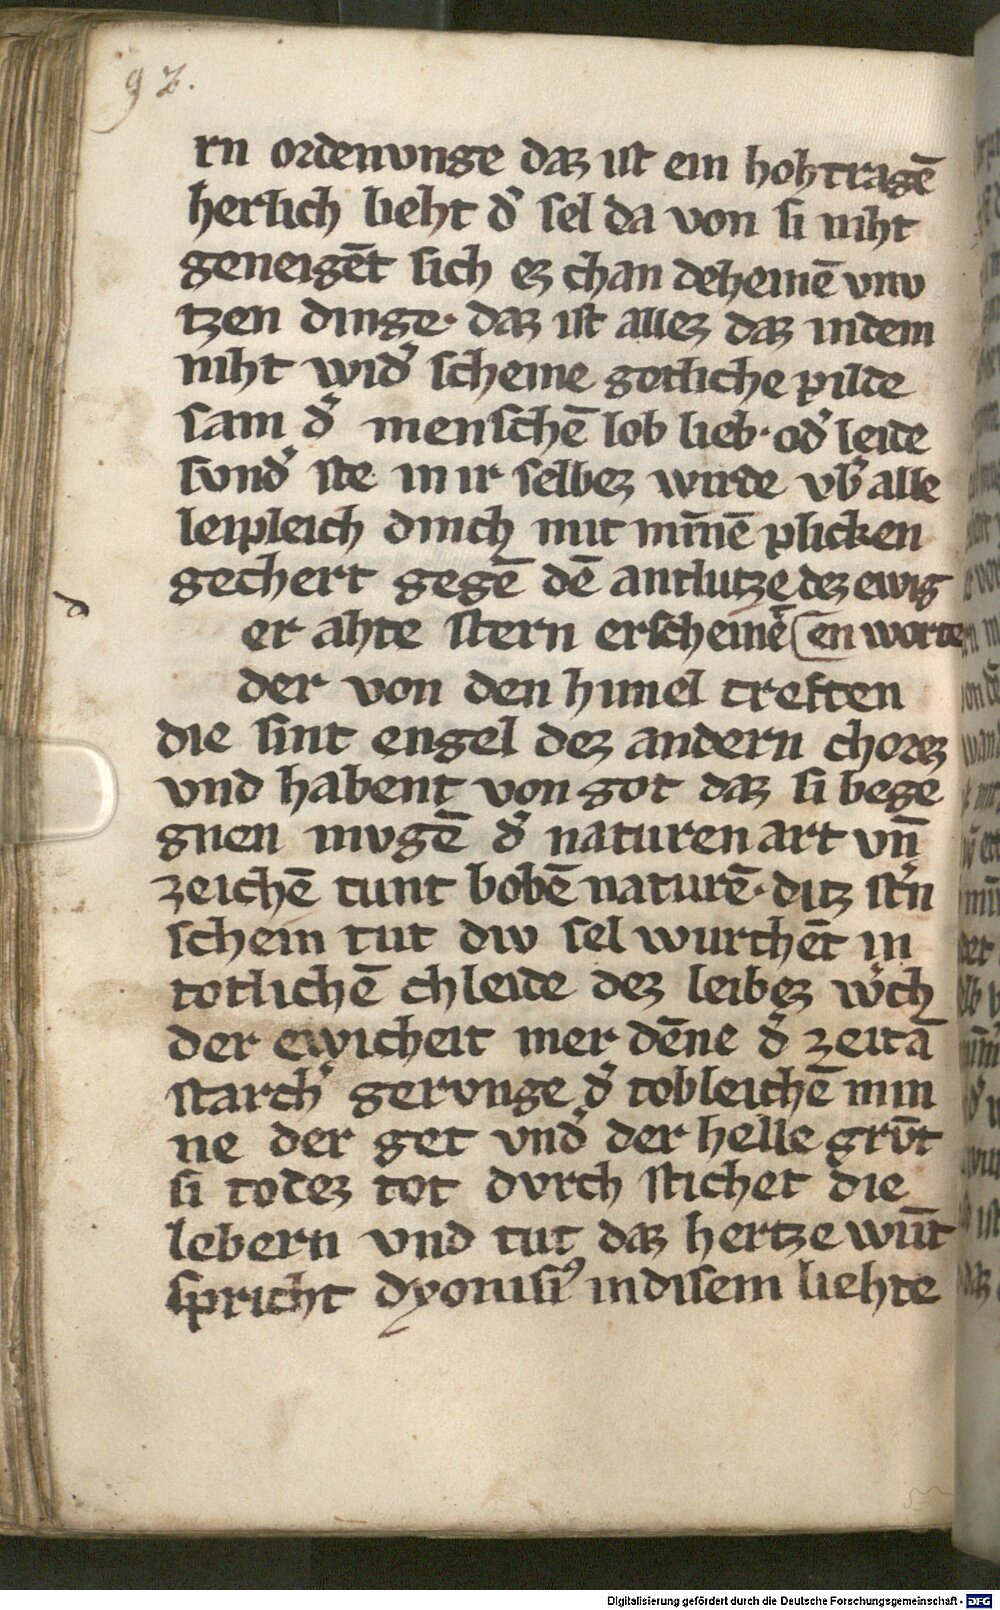 92.
rn ordenvnge daz ist ein hohtragē
herlich lieht d̾ sel da von si niht
geneigēt sich ez chan deheinē vnv
tzen dinge· daz ist allez daz indem
niht wid̾ scheine gotliche pilde
sam d̾ menschē lob lieb· od̾ leide
svnd̾ ste in ir selbez wirde vb̾ alle
leipleich dinch mit inn̄ē plicken
gechert gegē dē antlutze dez ewig
d er ahte stern erscheinē (en worte
der von den himel treften
die sint engel dez andern chorez
vnd habent von got daz si bege
gnen mvgē d̾ naturen art vn̄
zeichē tunt bobē naturē· ditz st̾n
schein tut div sel wurchēt in
totlichē chleide dez leibez w̾ch
der ewicheit mer dēne d̾ zeit ā
starch̾ gervnge d̾ tobleichē min
ne der get vnd̾ der helle grv̄t
si todez tot dvrch stichet die
lebern vnd tut daz hertze wūt
spricht dyonisi⁹ in disem liehte
Digitalisierung gefördert durch die Deutsche Forschungsgemeinschaft - DFG